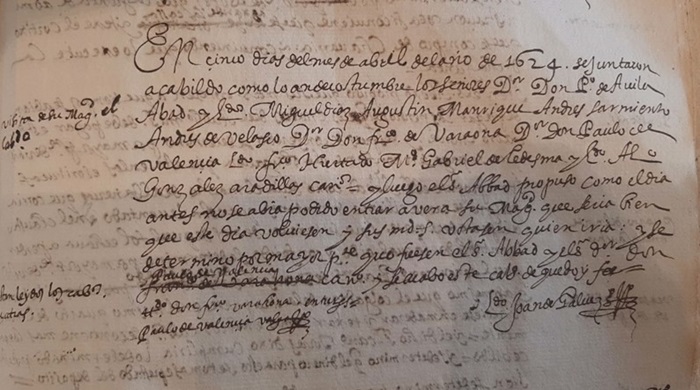 visita de su Mag. el
Cabdo
En cinco dias del mes de abrill del año de 1624. se juntaron
a cabildo como lo an de costumbre los señores Dr. Don Po. de Auila
Abad y Ldo. Miguel diez Augustin Manrique Andres sarmiento
Andres de Velasco Dr. Don fro. de Varaona Dr. Don Paulo de
Valencia Ldo. fro. Hurtado Mo. Gabriel de Ledesma y Ldo. Alo.
Gonzalez aradillas canos. y luego el sr. Abbad propuso como el dia
antes no se abia podido entrar a ver a su Magd. que seria bien
que este dia voluiesen y sus mds. votasen quien iria: y se
determino por mayor pte. que fuesen el sr. Abbad y el sr. dor. don
Paulo de Valencia
can. y se acabo este cabo. de quedo y fee
don fro. varahona
Paulo de valencia valga
Ldo Joan de